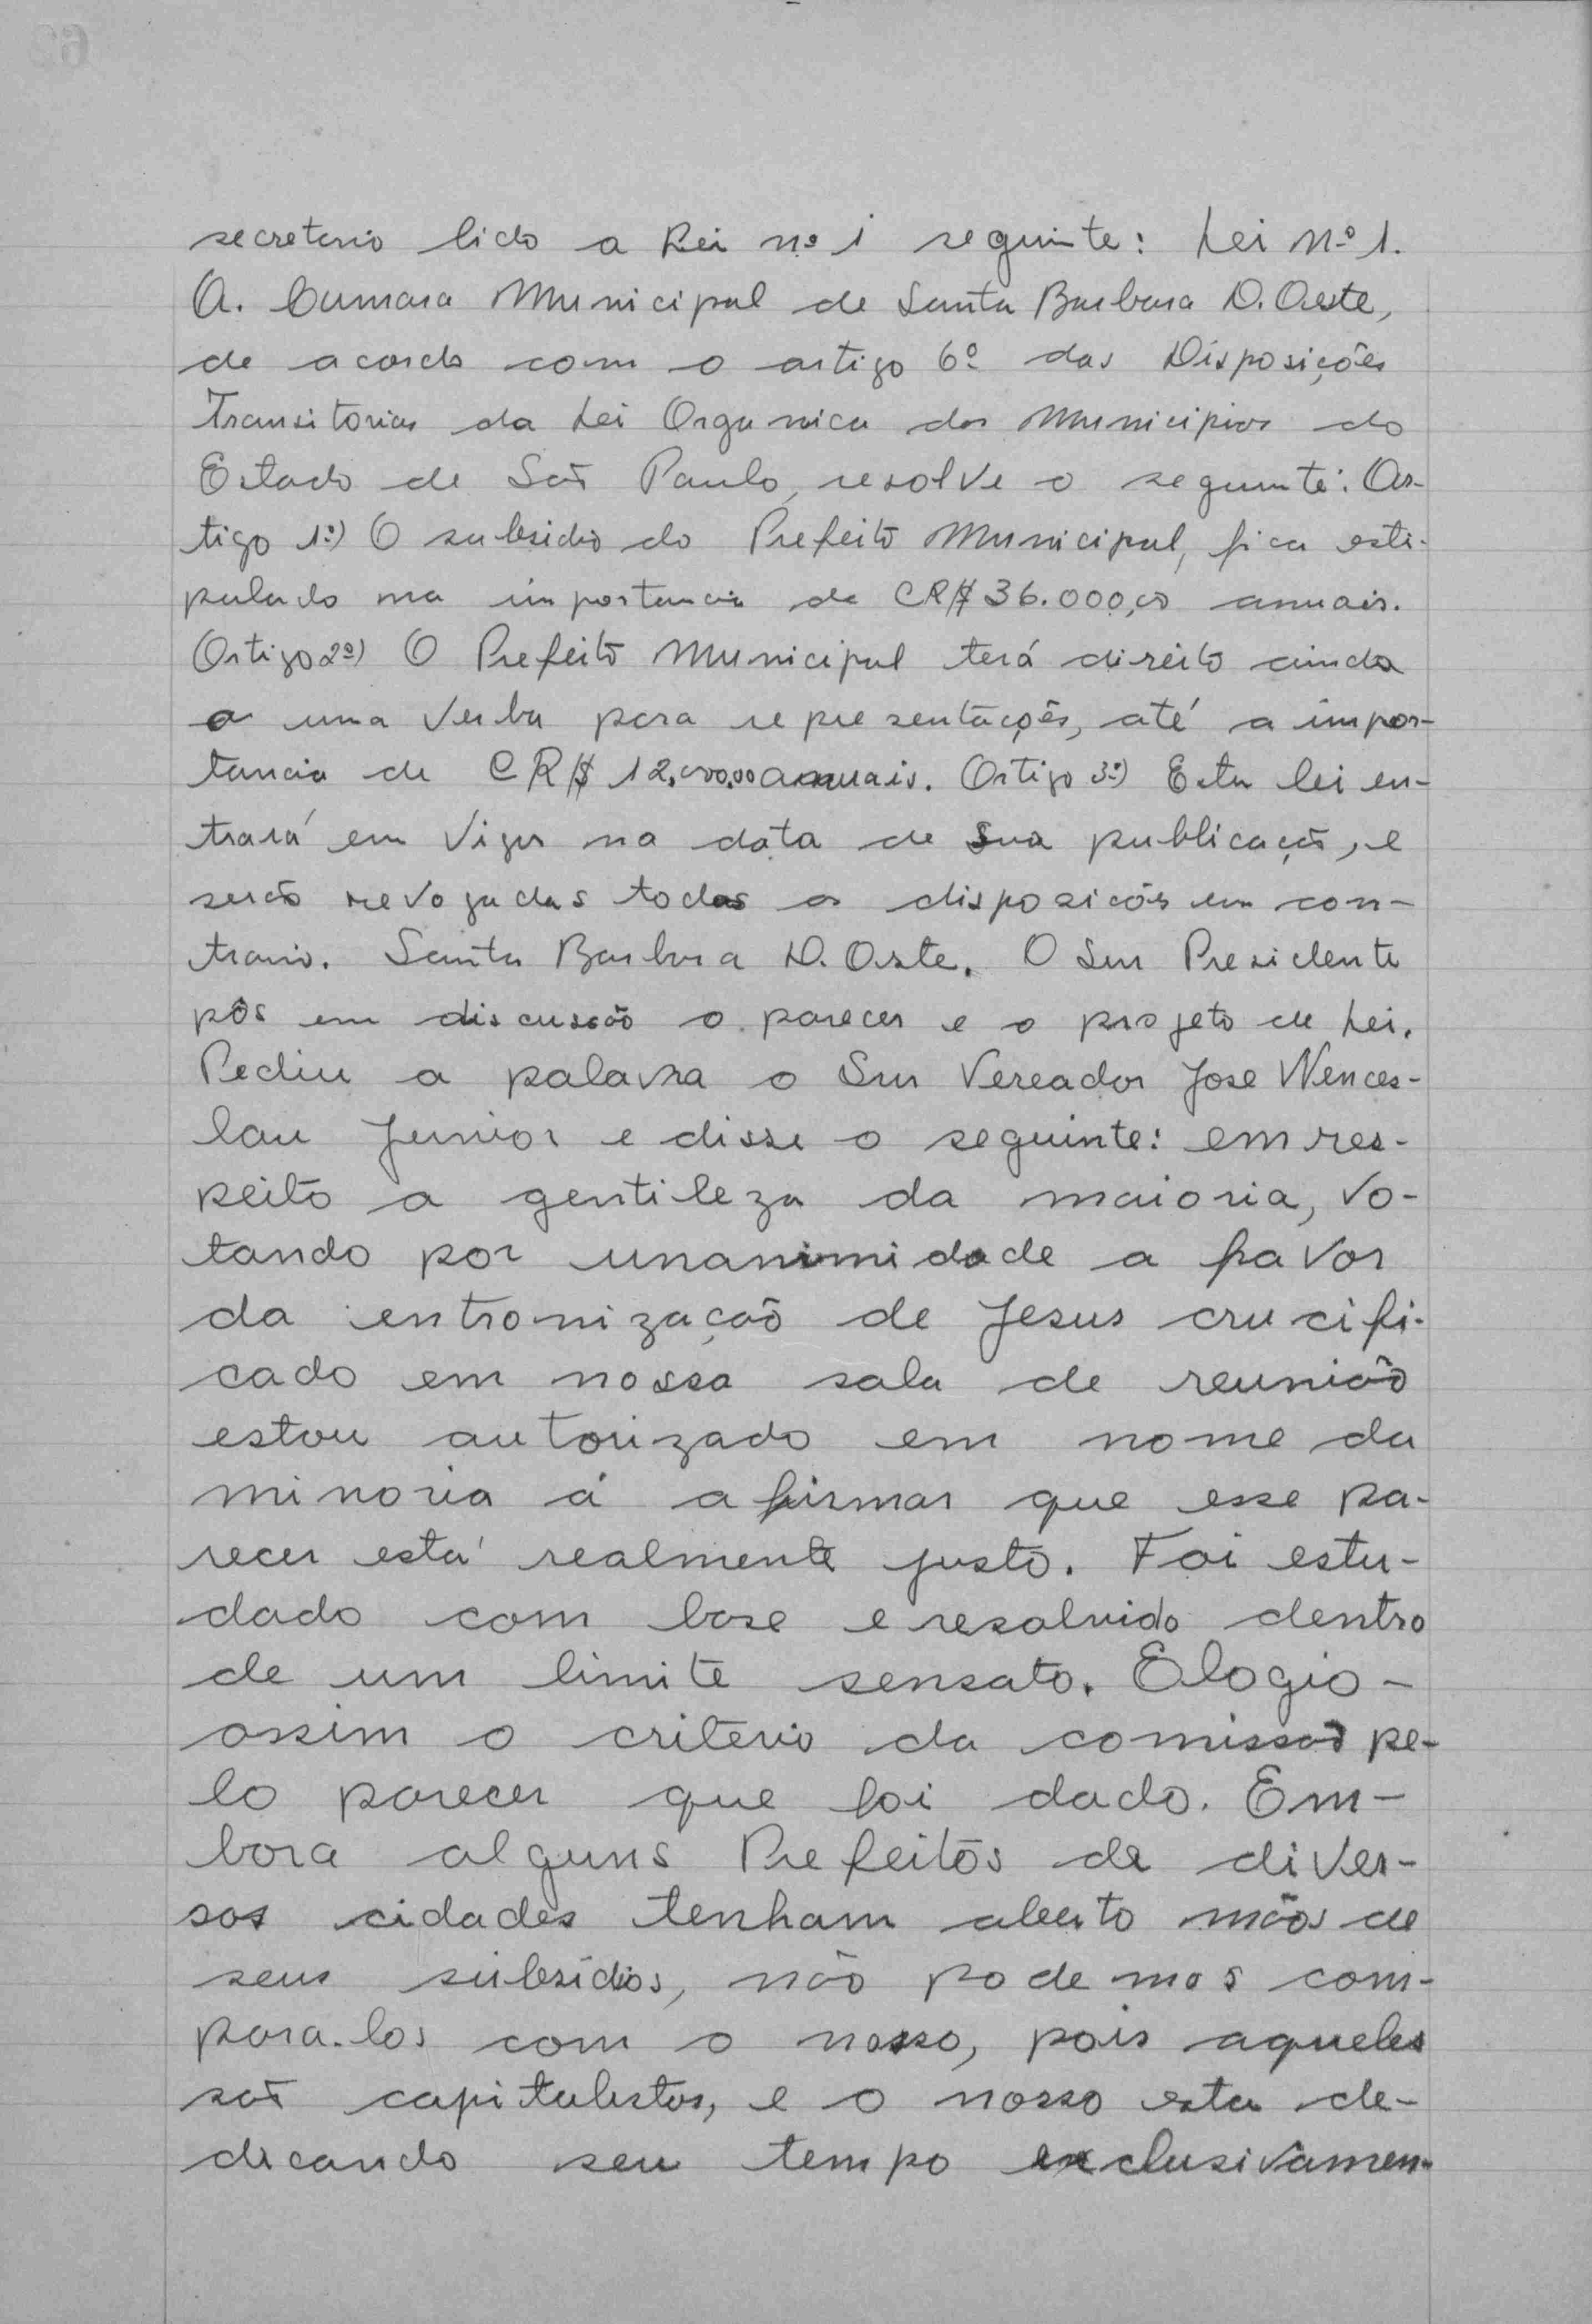 secretario lido a Lei nº 1 seguinte: Lei Nº 1.
A. Camara Municipal de Santa Barbara D. Oeste,
de acordo com o artigo 6º das Disposições
Transitorias da Lei Organica dos Municipios do
Estado de São Paulo, resolve o seguinte: Ar-
tigo 1º) O subsidio do Prefeito Municipal, fica esti-
pulado na importancia de CR$ 36.000,00 anuais.
Artigo 2º) O Prefeito Municipal terá direito ainda
a uma verba para representações, até a impor-
tancia de CR$ 12.000,00 anuais. Artigo 3º) Esta lei en-
trará em vigor na data de sua publicação, e
serão revogadas todas as disposicões em con-
trario. Santa Barbara D. Oste. O Snr Presidente
pôs em discussão o parecer e o projeto de Lei.
Pediu a palavra o Snr Vereador Jose Wences-
lau Junior e disse o seguinte: em res-
peito a gentileza da maioria, vo-
tando por unanimidade a favor
da entronização de Jesus crucifi-
cado em nossa sala de reunião
estou autorizado em nome da
minoria á afirmar que esse pa-
recer está realmente justo. Foi estu-
dado com base e resolvido dentro
de um limite sensato. Elogio-
assim o criterio da comissão pe-
lo parecer que foi dado. Em-
bora alguns Prefeitos de diver-
sas cidades tenham aberto mãos de
seus subsídios, não podemos com-
para-los com o nosso, pois aqueles
são capitalistas, e o nosso esta de-
dicando seu tempo exclusivamen-